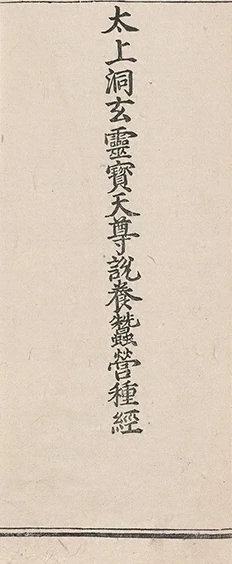 太上洞玄靈寶天尊說養蠶營種經